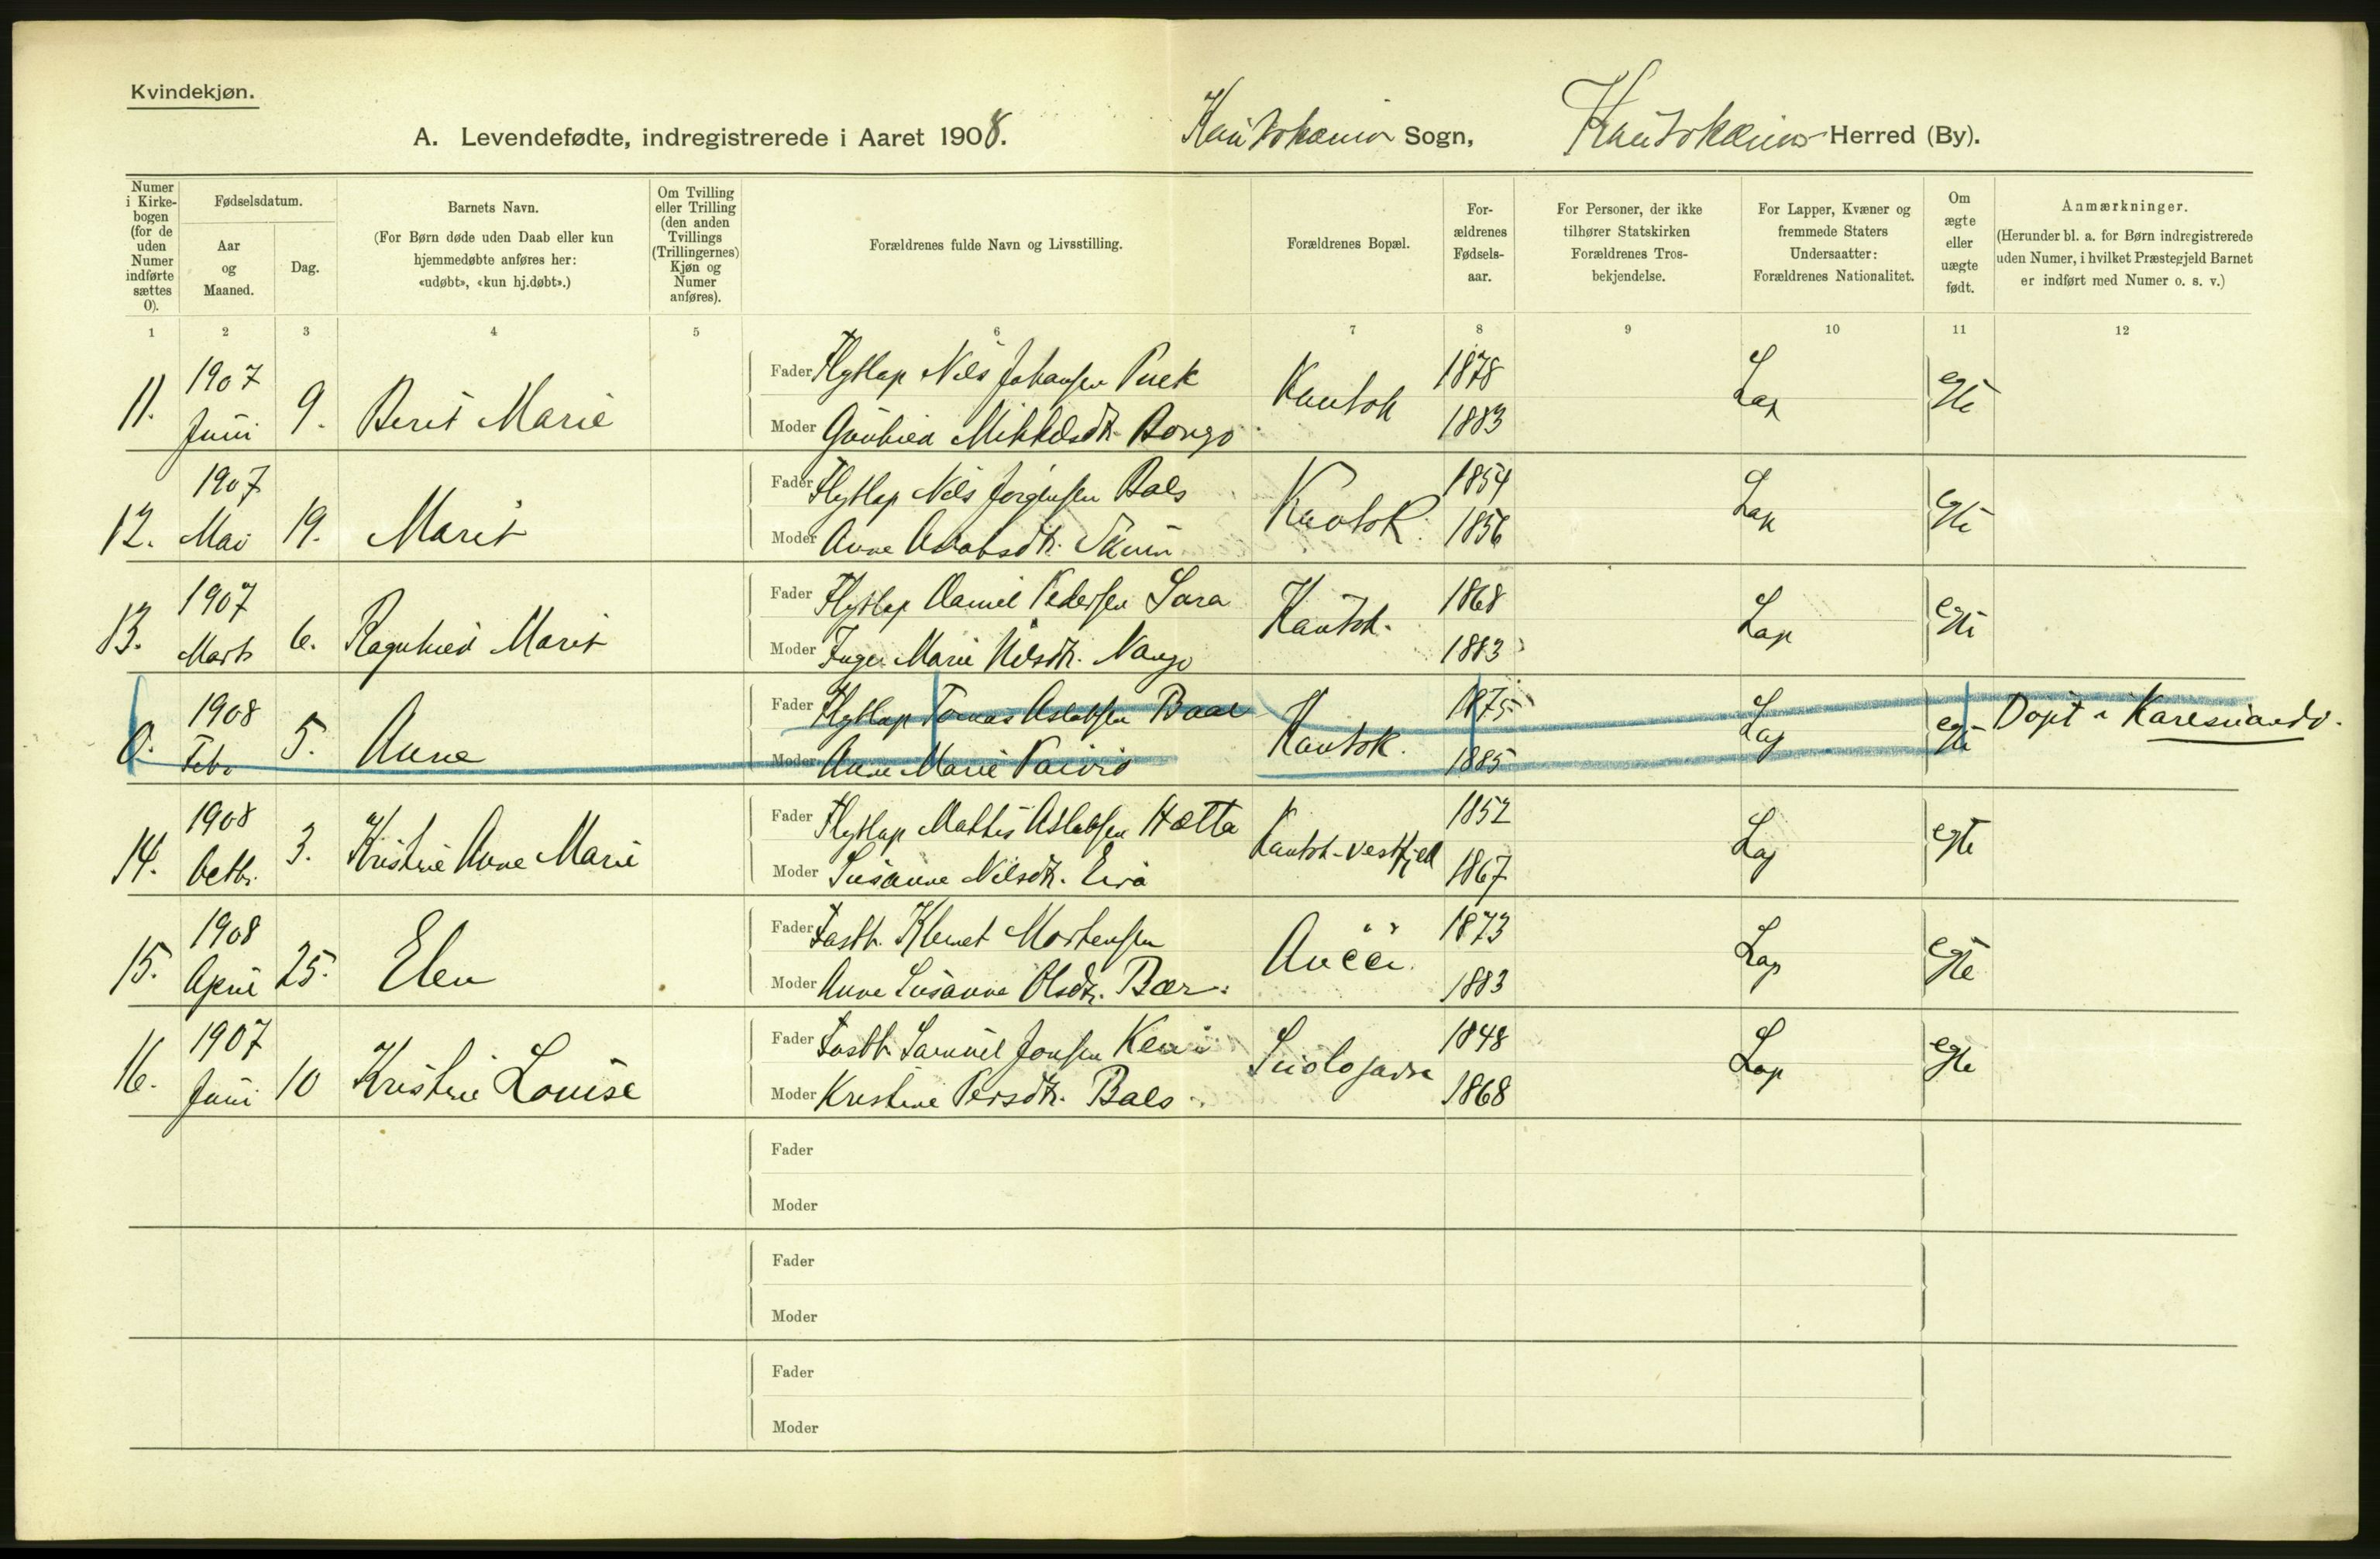 Kvindekjøn.
A. Levendefødte, indregistrerede i Aaret 1908. Kautokeino Sogn, Kautokeino Herred (By).
Numer i Kirkebogen (for de uden Numer indførte sættes 0).
Fødselsdatum.
Aar og Maaned.
Dag.
Barnets Navn.
(For Børn døde uden Daab eller kun hjemmedøbte anføres her: «udøbt», «kun hj.døbt».)
Om Tvilling eller Trilling (den anden Tvillings (Trillingernes) Kjøn og Numer anføres).
Forældrenes fulde Navn og Livsstilling.
Forældrenes Bopæl.
For-ældrenes Fødsels-aar.
For Personer, der ikke tilhører Statskirken Forældrenes Tros-bekjendelse.
For Lapper, Kvæner og fremmede Staters Undersaatter: Forældrenes Nationalitet.
Om ægte eller uægte født.
Anmærkninger.
(Herunder bl. a. for Børn indregistrerede uden Numer, i hvilket Præstegjeld Barnet er indført med Numer o. s. v.)
1 2 3 4 5 6 7 8 9 10 11 12
11. 1907 Juni 9. Berit Marie Fader Flytlap Nils Johansen Kautok 1878 Lap egte
Moder Mikkelsdtr. Bongo 1883
12. 1907 Mai 19. Marit Fader Flytlap Nils Jørgensen Bals Kautok. 1854 Lap egte
Moder Anne Aslaksdtr. 1856
13. 1907 Marts 6. Ragnhild Marit Fader Flytlap Daniel Pedersen Sara Kautok. 1868 Lap egte
Moder Inger Marie Nilsdtr. Nango 1883
0. 1908 Febr. 5. Anne Fader Flytlap Tomas Aslaksen Baal Kautok. 1875 Lap egte Døpt i Karesuando.
Moder Anne Marie Paivio 1885
14. 1908 Octbr. 3. Kristine Anne Marie Fader Flytlap Mathis Aslaksen Hætta Kautok-vestfjeld 1852 Lap egte
Moder Susanne Nilsdtr. Eira 1867
15. 1908 April 25. Elen Fader Fastb. Klemet Mortensen 1873 Lap egte
Moder Anne Susanne Olsdtr. Bær. 1883
16. 1907 Juni 10 Kristine Louise Fader Fastb. Samuel Jonsen Suolojavre 1848 Lap egte
Moder Kristine Persdtr. Bals 1868
Fader
Moder
Fader
Moder
Fader
Moder